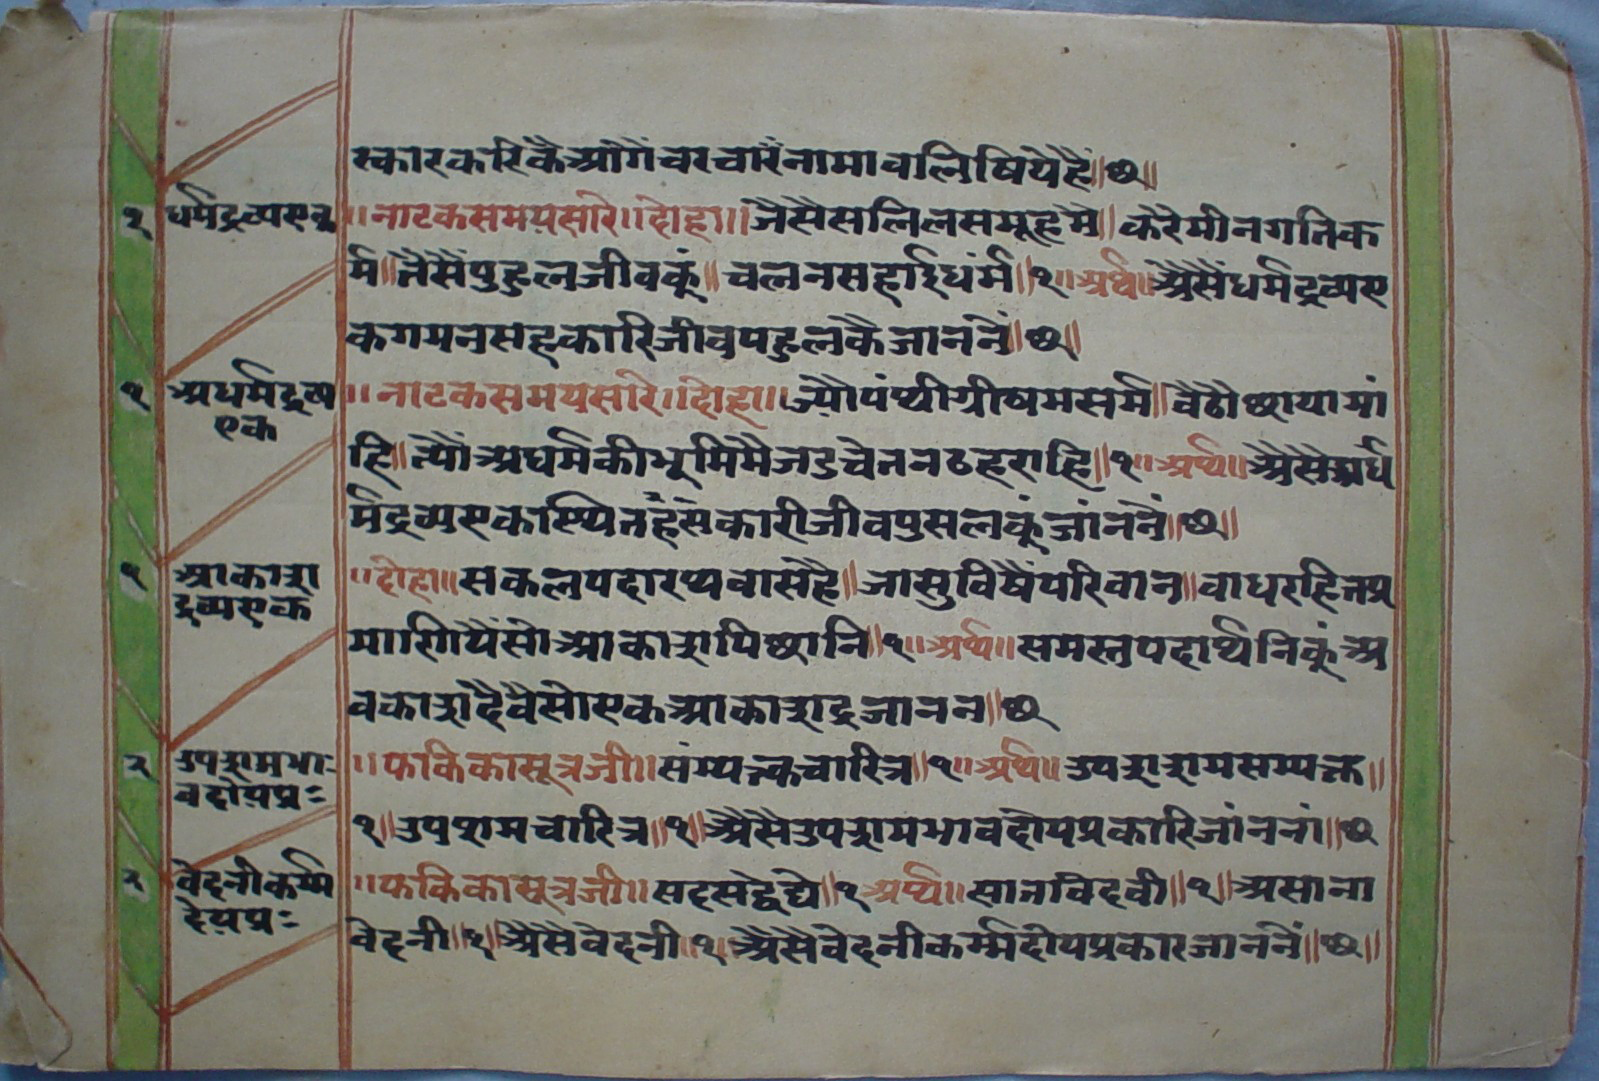 स्कारकरिकै आगै चरचारं नामावलि षियेहै॥छ॥
१ धर्मद्रव्यएक ॥नाटकसमयसारे॥दोहा॥ जैसैसलिलसमूहमै॥ करैमीनगतिक
र्म॥तैसैंपुद्गलजीवकूं॥ चलनसहाईधंर्म॥१॥अर्थ॥अैसैंधर्मद्रव्यए
कगमनसहकारिजीवपद्गलकैजाननैं॥छ॥
१ अधर्मद्रव्य
एक
॥नाटकसमयसारे॥दोहा॥ ज्यौपंथीग्रीषमसमै॥ वैठौछायामां
हि॥त्यौंअधर्मकीभूमिमैजडचेतनठहराहि॥१॥अर्थ॥अैसैअध
र्मद्रव्यएकस्थितहंसंकारीजीवपुसलकूंजांननैं॥छ॥
१ आकाश
द्रव्यएक
॥दोहा॥सकलपदारथवासहै॥जासुविषैंपरिवान॥वाधरहितप्र
माणियैंसोआकाशपिछानि॥१॥अर्थ॥समस्तपदार्थनिकूंअ
वकाशदैवैसोएकआकाशद्रजानन॥छ
२ उपशमभा-
वदोयप्रः
॥फकिकासूत्रजी॥संम्यक्त्कचारित्र॥१॥अर्थ॥उपशशमसम्यक्त॥
१॥उपशमचारित्र॥१॥अैसैउपशमभावदोयप्रकारिजांननां॥छ
२ वेदनीकर्म्म
देयप्रः
॥फकिकासूत्रजी॥सदसद्वेद्ये॥१अर्थ॥सातावेदवी॥१॥असाता
वेदनी॥१॥अैसैवेदनी॥१॥अैसैवेदनीकर्म्मदोयप्रकारजाननैं॥छ॥